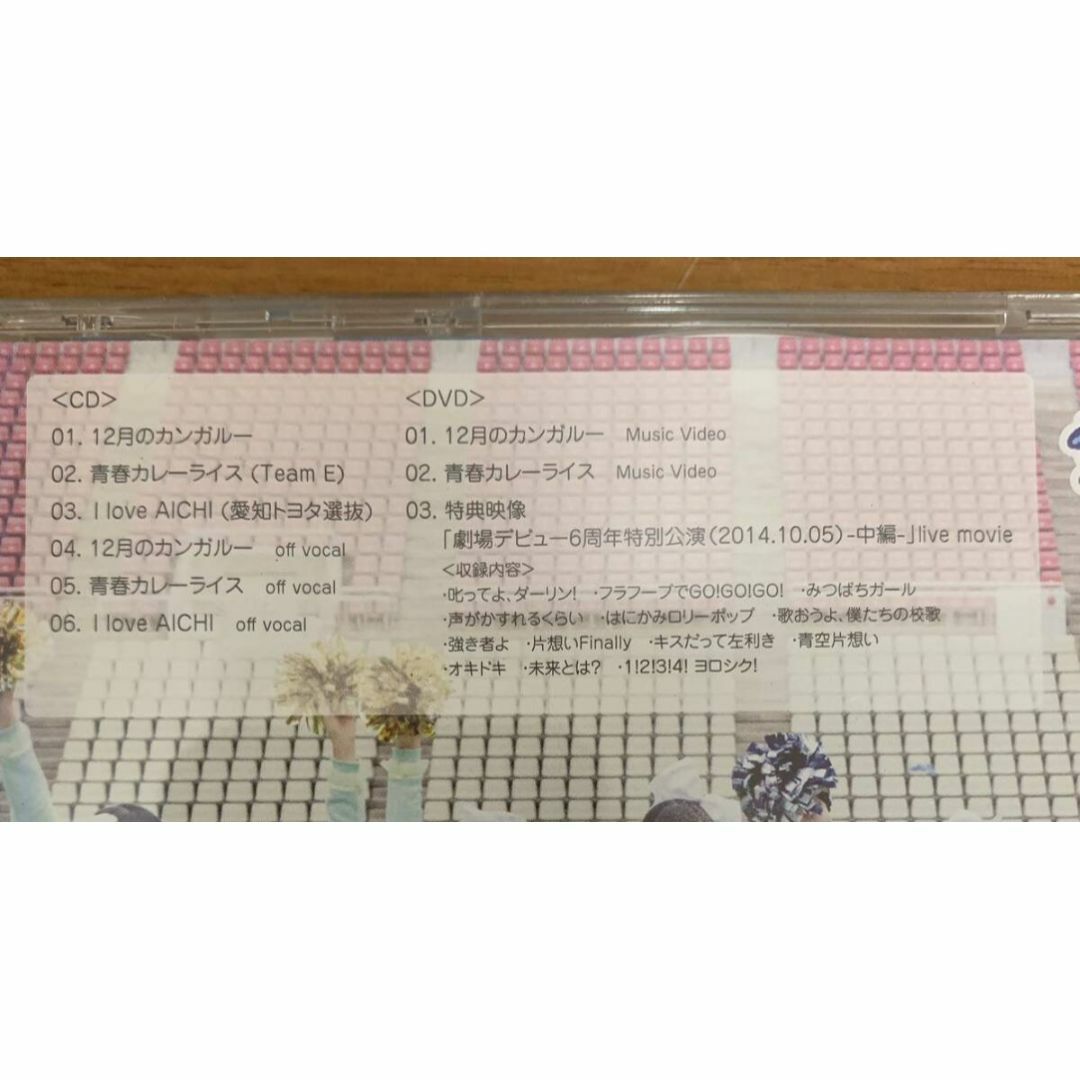 <CD>
01. 12月のカンガルー
02. 青春カレーライス (Team E)
03. I love AICHI (愛知トヨタ選抜)
04. 12月のカンガルー off vocal
05. 青春カレーライス off vocal
06. I love AICHI off vocal
<DVD>
01. 12月のカンガルー Music Video
02. 青春カレーライス Music Video
03. 特典映像
「劇場デビュー6周年特別公演(2014.10.05)-中編-」live movie
<収録内容>
・叱ってよ、ダーリン! ・フラフープでGO!GO!GO! ・みつばちガール
・声がかすれるくらい ・はにかみロリーポップ ・歌おうよ、僕たちの校歌
・強き者よ ・片想いFinally ・キスだって左利き ・青空片想い
・オキドキ ・未来とは? ・1!2!3!4! ヨロシク!